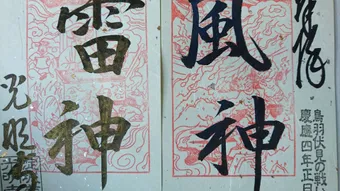 奉拝
鳥羽伏見の戦い
慶應四年正月
風神
雷神
光明